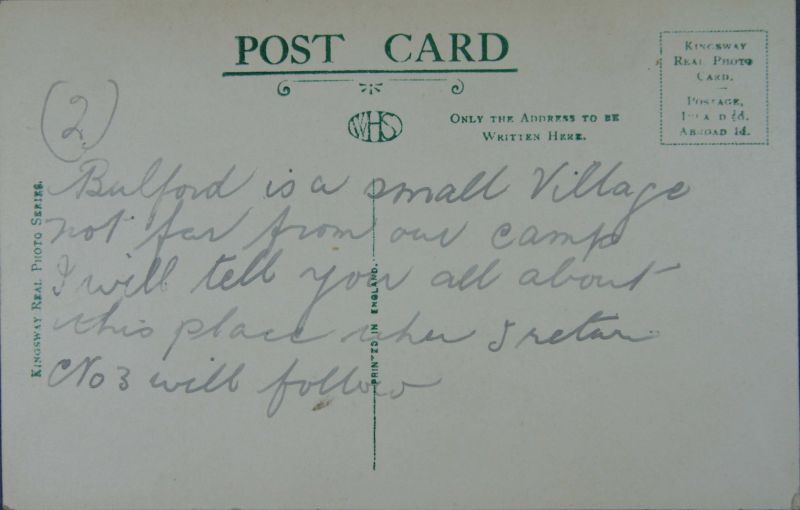 POST CARD
KINGSWAY
REAL PHOTO
CARD.
POSTAGE,
INLAND ½d.
ABROAD 1d.
WHS
ONLY THE ADDRESS TO BE
WRITTEN HERE.
(2)
Bulford is a small Village
not far from our camp
I will tell you all about
this place when I retur
No 3 will follow
KINGSWAY REAL PHOTO SERIES.
PRINTED IN ENGLAND.